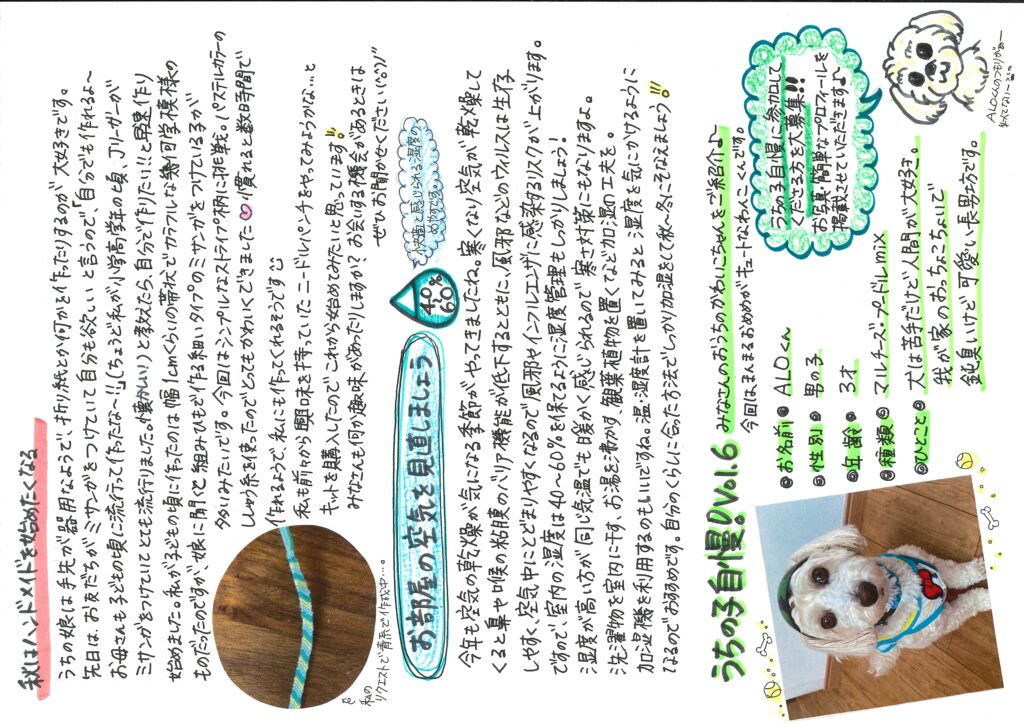 秋はハンドメイドを始めたくなる
うちの娘は手先が器用なようで、折り紙とか何かを作ったりするのが大好きです。
先日は、お友だちがミサンガをつけていて自分も欲しい と言うので、「自分でも作れるよ〜
お母さんも子どもの頃に流行って作ったな〜!!」(ちょうど私が小学高学年の頃、Jリーガーが
ミサンガをつけていてとても流行りました。懐かしい)と教えたら、自分で作りたい!!と早速作り
始めました。私が子どもの頃に作ったのは幅1cmくらいの帯状でカラフルな幾何学模様の
ものだったのですが、娘に聞くと組みひもで作る細いタイプのミサンガをつけている子が
多いみたいです。今回はシンプルなストライプ柄に挑戦。パステルカラーの
ししゅう糸を使ったのでとってもかわいくできました♡慣れると数時間で
作れるようで、私にも作ってくれるそうです
私も前々から興味を持っていたニードルパンチをやってみようかな…と
キットを購入したのでこれから始めてみたいと思っています!!
みなさんも何か趣味があったりしますか?お会いする機会があるときは
ぜひお聞かせくださいね♪
私の
リクエストで青系で作成中…。
お部屋の空気を見直しましょう
40
%
60
快適と感じられる湿度の
めやすです。
今年も空気の乾燥が気になる季節がやってきましたね。寒くなり空気が乾燥して
くると鼻や口、喉の粘膜のバリア機能が低下するとともに、風邪などのウィルスは生存
しやすく、空気中にとどまりやすくなるので風邪やインフルエンザに感染するリスクが上がります。
ですので、室内の湿度は40〜60%を保てるように湿度管理もしっかりしましょう!
湿度が高い方が同じ気温でも暖かく感じられるので寒さ対策にもなりますよ。
洗濯物を室内に干す、お湯を沸かす、観葉植物を置くなど加湿の工夫を。
加湿機を利用するのもいいですね。温・湿度計を置いてみると湿度を気にかけるように
なるのでおすすめです。自分のくらしに合った方法でしっかり加湿をして秋〜冬にそなえましょう!!
うちの子自慢 Vol.6
みなさんのおうちのかわいこちゃんをご紹介♪
今回はまんまるおめめがキュートなわんこくんです。
◎お名前◎ ALOくん
◎性別◎ 男の子
◎年齢◎ 3才
◎種類◎ マルチーズ・プードルmix
◎ひとこと◎ 犬は苦手だけど人間が大好き。
我が家のおっちょこちょいで
鈍臭いけど可愛い長男坊です。
うちの子自慢に参加して
くださる方を大募集!!
お写真・簡単なプロフィールを
掲載させていただきます♪
ALOくんのつもりがぁー
似てなーい